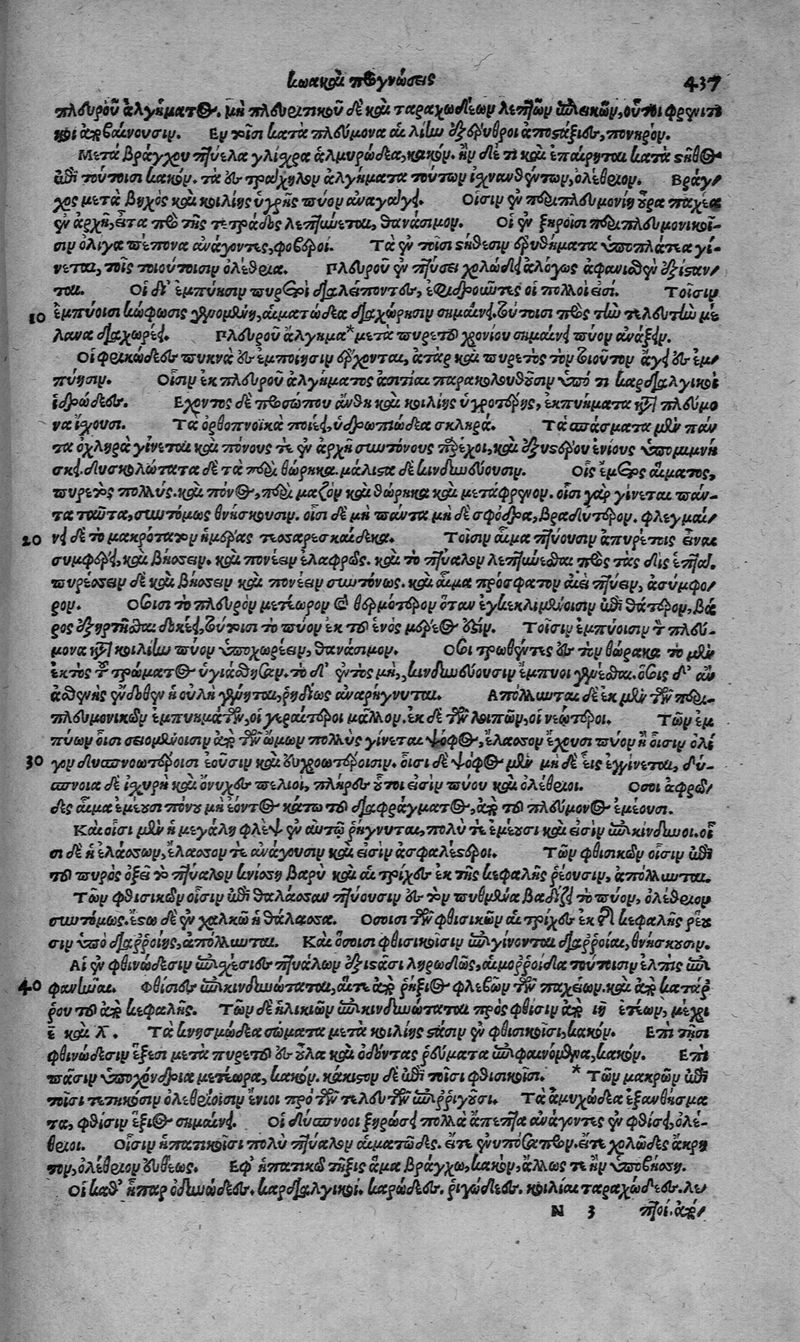 κωακαὶ προγνώσεις 437
πλευροῦ ἀλγήματος. μὴ πλευριτικοῦ δὲ καὶ ταραχωδέων λεπτῶν ἐπιεικῶν, οὗτοι φρενιτι
κοὶ ἀποβαίνουσιν. Ἐν τοῖσι κατὰ πλεύμονα αἱ λίην ἐξέρυθροι ἀποστάξιες, πονηρόν.
Μετὰ βράγχου πτύελα γλίσχρα ἁλμυρώδεα, κακόν. ἢν δέ τι καὶ ἐπαίρηται κατὰ στῆθος
ἐπὶ τούτοισι κακόν. τὰ ἐς τράχηλον ἀλγήματα τούτων ἰχνανθέντων, ὀλέθριον. Βράγ/
χος μετὰ βηχὸς καὶ κοιλίης ὑγρῆς πύον ἀναγάγει. Οἷσιν ἐν περιπλευμονίῃ οὖρα παχέα
ἐν ἀρχῇ, εἶτα πρὸ τῆς τετράδος λεπτύνεται, θανάσιμον. Οἱ ἐν ξηροῖσι περιπλευμονικοῖ=
σιν ὀλίγα πέπονα ἀνάγοντες, φοβεροί. Τὰ ἐν τοῖσι στήθεσιν ἐρυθήματα ὑποπλάτεα γί=
νεται, τοῖς τοιούτοισιν ὀλέθρια. Πλευροῦ ἐν πτύσει χολώδει ἀλόγως ἀφανισθὲν ἐξίσταν/
ται. Οἱ δι' ἐμπύησιν πυρετοὶ διαλείποντες, ἐφιδρῶντες οἱ πολλοί εἰσι. Τοῖσιν
10 ἐμπύοισι κώφωσις γενομένη, αἱματώδεα διαχώρησιν σημαίνει, τούτοισι πρὸς τὴν τελευτὴν μέ
λανα διαχωρέει. Πλευροῦ ἄλγημα* μετὰ πυρετοῦ χρονίου σημαίνει πύον ἀνάξειν.
Οἱ φρικώδεες πυκνὰ ἐς ἐμποίησιν ἔρχονται, ἀτὰρ καὶ πυρετὸς τὸν τοιοῦτον ἄγει ἐς ἐμ/
πύησιν. Οἷσιν ἐκ πλευροῦ ἀλγήματος ἀσιτίαι παρακολουθοῦσιν ὑπό τι καρδιαλγικοὶ
ἱδρώδεες. Ἔχοντος δὲ προσώπου ἄνθη καὶ κοιλίης ὑγροτέρης, ἐκπυήματα κατὰ πλεύμο
να ἴσχουσι. Τὰ ὀρθοπνοϊκὰ ποιέει, ὑδρωπιώδεα σκληρά. Τὰ σπάσματα μὲν πάν
τα ὀχληρὰ γίνεται καὶ πόνους τε ἐν ἀρχῇ συντόνους παρέχει, καὶ ἐξ ὑστέρου ἐνίους ὑπομιμνή
σκει. δυσκολώτατα δὲ τὰ περὶ θώρηκα. μάλιστα δὲ κινδυνεύουσιν. Οἷς ἔμετος αἵματος,
πυρετὸς πολλὺς. καὶ πόνος, περὶ μαζὸν καὶ θώρηκα καὶ μετάφρενον. οἷσι γὰρ γίνεται πάν=
τα ταῦτα, συντόμως θνήσκουσιν. οἷσι δὲ μὴ πάντα μηδὲ σφόδρα, βραδύτερον. φλεγμαί/
20 νει δὲ τὸ μακρότατον ἡμέρας τεσσαρεσκαίδεκα. Τοῖσιν αἷμα πτύουσιν ἀπυρέτοις εἶναι
συμφέρει, καὶ βήσσειν. καὶ πονέειν ἐλαφρῶς. καὶ τὸ πτύαλον λεπτύνεσθαι πρὸς τὰς δὶς ἑπτά.
πυρέσσειν δὲ καὶ βήσσειν καὶ πονέειν συντόνως. καὶ αἷμα πρόσφατον αἰεὶ πτύειν, ἀσύμφο/
ρον. Οἷσι τὸ πλευρὸν μετέωρον καὶ θερμότερον ὅταν ἐγκεκλιμένοισιν ἐπὶ θάτερον, βά
ρος ἐξηρτῆσθαι δοκέει, τούτοισι τὸ πύον ἐκ τοῦ ἑνὸς μέρεος ἐστίν. Τοῖσιν ἐμπύοισιν τὸ πλεύ=
μονα κατὰ κοιλίην πύον ὑποχωρέειν, θανάσιμον. Οἱ τρωθέντες ἐς τὸν θώρακα τὸ μὲν
ἐκτὸς τοῦ τρώματος ὑγιάσθησαν. τὸ δ' ἐντὸς μὴ, κινδυνεύουσιν ἔμπυοι γενέσθαι. οἷς δ' ἂν
ἀσθενὴς ἔνδοθεν ἡ οὐλὴ γένηται, ῥηιδίως ἀναρήγνυται. Ἀπόλλυνται δὲ ἐκ μὲν τῶν περι=
πλευμονικῶν ἐμπυημάτων, οἱ γεραίτεροι μᾶλλον. ἐκ δὲ τῶν λοιπῶν, οἱ νεώτεροι. Τῶν ἐμ
πύων οἷσι σειομένοισιν ἀπὸ τῶν ὤμων πολλὺς γίνεται ψόφος, ἔλασσον ἔχουσι πύον ἢ οἷσιν ὀλί
30 γον δυσπνοωτέροισι ἐοῦσιν καὶ εὐχροωτέροισιν. οἷσι δὲ ψόφος μὲν μηδὲ εἷς ἐγγίνεται, δύ=
σπνοια δὲ ἰσχυρὴ καὶ ὄνυχες πελιοὶ, πλήρεες οὗτοι εἰσὶν πύου καὶ ὀλέθριοι. Ὅσοι ἀφρῶ/
δες αἷμα ἐμέουσι πόνου μὴ ἐόντος κάτω τοῦ διαφράγματος, ἀπὸ τοῦ πλεύμονος ἐμέουσι.
Καὶ οἷσι μὲν ἡ μεγάλη φλὲψ ἐν αὐτῷ ῥήγνυται, πολύ τε ἐμέουσι καὶ εἰσὶν ἐπικίνδυνοι. οἷ
σι δὲ ἡ ἐλάσσων, ἔλασσόν τε ἀνάγουσιν καὶ εἰσὶν ἀσφαλέστεροι. Τῶν φθισικῶν οἷσιν ἐπὶ
τοῦ πυρὸς ὄζει τὸ πτύαλον κνίσσῃ βαρὺ καὶ αἱ τρίχες ἐκ τῆς κεφαλῆς ῥέουσιν, ἀπόλλυνται.
Τῶν φθισικῶν οἷσιν ἐπὶ θάλασσαν πτύουσιν ἐς τὸν πυθμένα βαδίζει τὸ πύον, ὀλέθριον
συντόμως. ἔστω δὲ ἐν χαλκῷ ἡ θάλασσα. Ὁπόσοισι τῶν φθισικῶν αἱ τρίχες ἐκ τῆς κεφαλῆς ῥέου
σιν ὑπὸ διαρροίης, ἀπόλλυνται. Καὶ ὅσοισι φθισικοῖσιν ἐπιγίνονται διάρροιαι, θνήσκουσιν.
Αἱ ἐν φθινώδεσιν ἐπισχέσιες πτυάλων ἐξιστᾶσι ληρωδῶς, αἱμορροΐδα τούτοισιν ἐλπὶς ἐπι
40 φανῆναι. Φθίσιες ἐπικινδυνώταται, αἵ τε ἀπὸ ῥήξιος φλεβῶν τῶν παχέων. καὶ ἀπὸ κατάρ
ρου τοῦ ἀπὸ κεφαλῆς. Τῶν δὲ ἡλικιῶν ἐπικινδυνώταται πρὸς φθίσιν ἀπὸ ιη ἐτέων, μέχρι
ε καὶ λ. Τὰ κνησμώδεα σώματα μετὰ κοιλίης στάσιν ἐν φθισικοῖσι, κακόν. Ἐπὶ τῇσι
φθινώδεσιν ἕξεσι μετὰ πυρετοῦ ἐς οὖλα καὶ ὀδόντας ῥεύματα ἐπιφαινόμενα, κακόν. Ἐπὶ
πᾶσιν ὑποχόνδρια μετέωρα, κακόν. κάκιστον δὲ ἐπὶ τοῖσι φθισικοῖσι. * Τῶν μακρῶν ἐπὶ
τοῖσι τετηκόσιν ὀλεθρίοισιν ἔνιοι πρὸς τὴν τελευτὴν ἐπιρριγοῦσι. Τὰ ἀμυχώδεα ἐξανθήσμα
τα, φθίσιν ἕξιος σημαίνει. Οἱ δύσπνοοι ξηρῶς ἢ πολλὰ ἄπεπτα ἀνάγοντες ἐν φθίσει, ὀλέ=
θριοι. Οἷσιν ἡπατικοῖσι πολὺ πτύαλον αἱματῶδες. εἴτε ἐνυπόσαπρον. εἴτε χολῶδες ἄκρη
τον, ὀλέθριον εὐθέως. Ἐφ' ἡπατικῷ τῆξις ἅμα βράγχῳ, κακόν, ἄλλως τε ἢν ὑποβήσσῃ.
Οἱ καθ' ἧπαρ ὀδυνώδεες. καρδιαλγικοὶ. καρώδεες. ῥιγώδεες. κοιλίαι ταραχώδεες. λε/
N 3 πτοί. ἀπό/